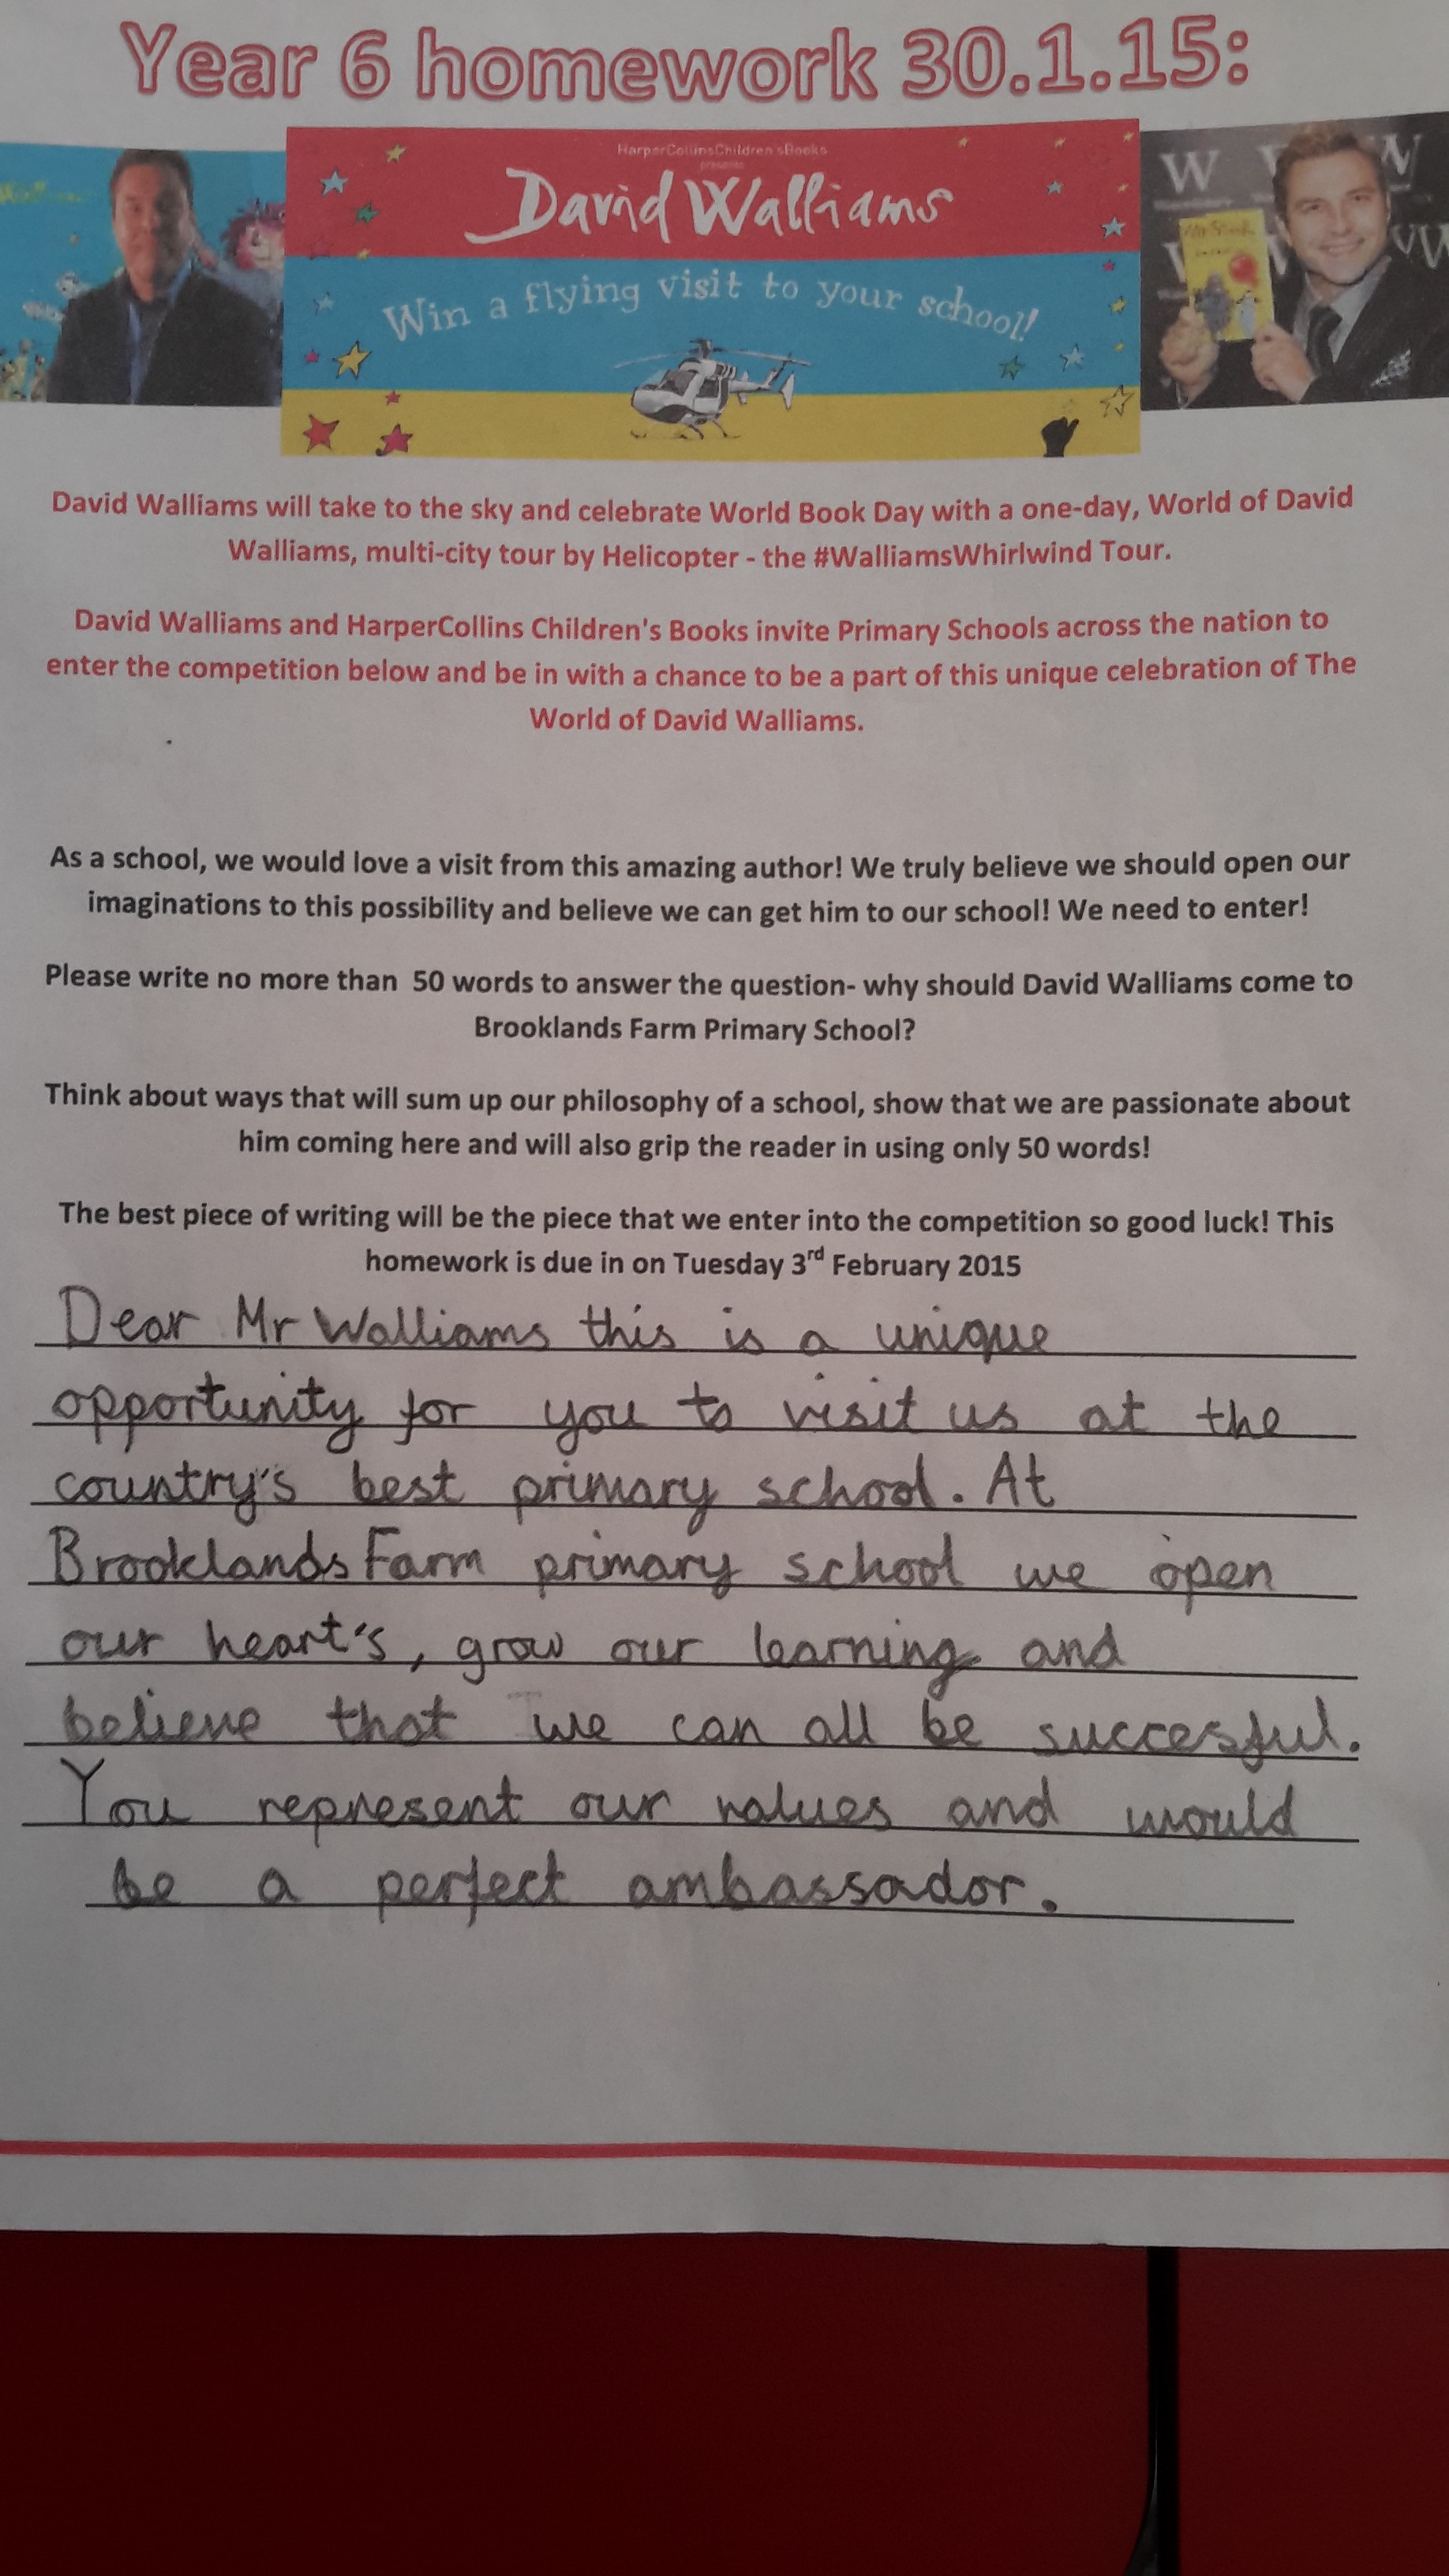 Year 6 homework 30.1.15:
HarperCollinsChildren'sBooks
presents
David Walliams
Win a flying visit to your school!
David Walliams will take to the sky and celebrate World Book Day with a one-day, World of David
Walliams, multi-city tour by Helicopter - the #WalliamsWhirlwind Tour.
David Walliams and HarperCollins Children's Books invite Primary Schools across the nation to
enter the competition below and be in with a chance to be a part of this unique celebration of The
World of David Walliams.
As a school, we would love a visit from this amazing author! We truly believe we should open our
imaginations to this possibility and believe we can get him to our school! We need to enter!
Please write no more than 50 words to answer the question- why should David Walliams come to
Brooklands Farm Primary School?
Think about ways that will sum up our philosophy of a school, show that we are passionate about
him coming here and will also grip the reader in using only 50 words!
The best piece of writing will be the piece that we enter into the competition so good luck! This
homework is due in on Tuesday 3rd February 2015
Dear Mr Walliams this is a unique
opportunity for you to visit us at the
country's best primary school. At
Brooklands Farm primary school we open
our heart's, grow our learning and
believe that we can all be succesful.
You represent our values and would
be a perfect ambassador.